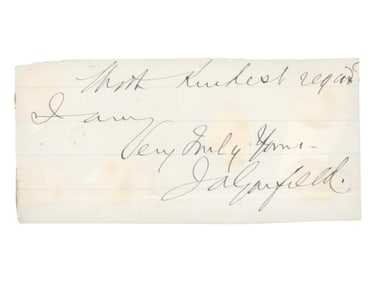 With Kindest regards
I am
Very Truly Yours-
J A Garfield.